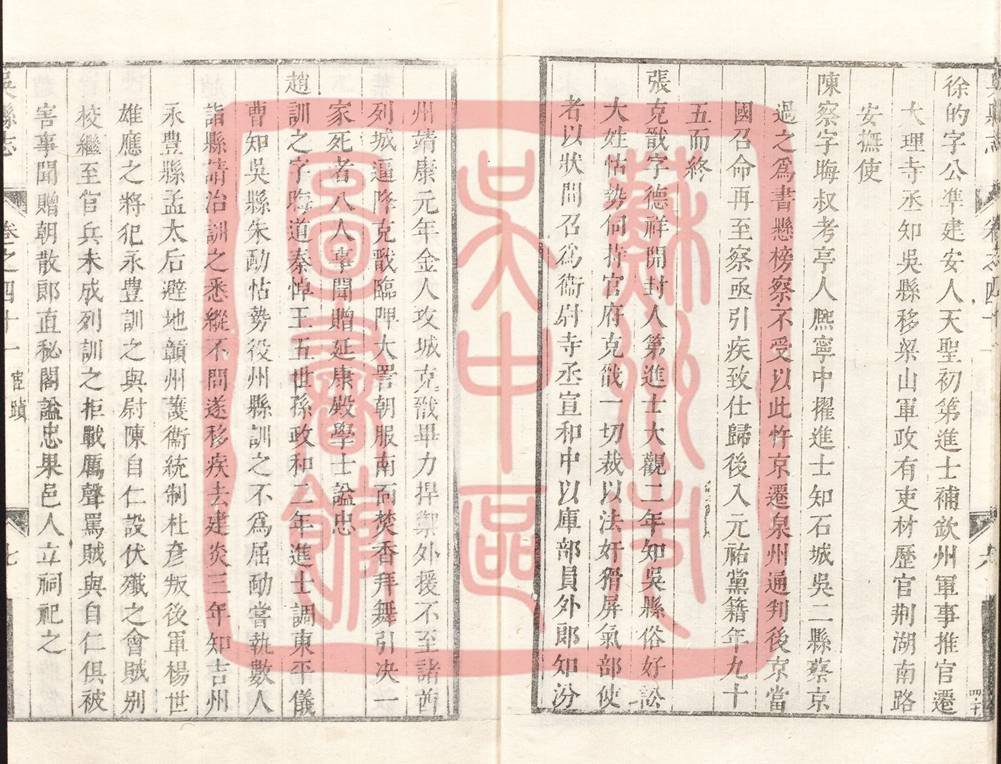 徐的字公準建安人天聖初第進士補欽州軍事推官遷
大理寺丞知吳縣移梁山軍政有吏材歷官荆湖南路
安撫使
陳察字晦叔考亭人熈寧中擢進士知石城吳二縣蔡京
過之爲書懸榜察不受以此忤京遷泉州通判後京當
國召命再至察亟引疾致仕歸後入元祐黨籍年九十
五而終
張克戩字德祥開封人第進士大觀二年知吳縣俗好訟
大姓怙勢何持官府克戩一切裁以法奸猾屏氣部使
者以狀聞召爲衞尉寺丞宣和中以庫部員外郎知汾
州靖康元年金人攻城克戩畢力捍禦外援不至諸酋
列城逼降克戩臨陴大罵朝服南向焚香拜舞引决一
家死者八人事聞贈延康殿學士諡忠
趙訓之字晦道秦悼王五世孫政和二年進士調東平儀
曹知吳縣朱勔怙勢役州縣訓之不爲屈勔嘗執數人
詣縣請治訓之悉縱不問遂移疾去建炎三年知吉州
永豐縣孟太后避地贛州護衞統制杜彦叛後軍楊世
雄應之將犯永豐訓之與尉陳自仁設伏殲之會賊别
校繼至官兵未成列訓之拒戰厲聲罵賊與自仁俱被
害事聞贈朝散郎直秘閣諡忠果邑人立祠祀之
吳縣志
卷之四十一 宦蹟
七
蘇州市
吳中區
圖書館